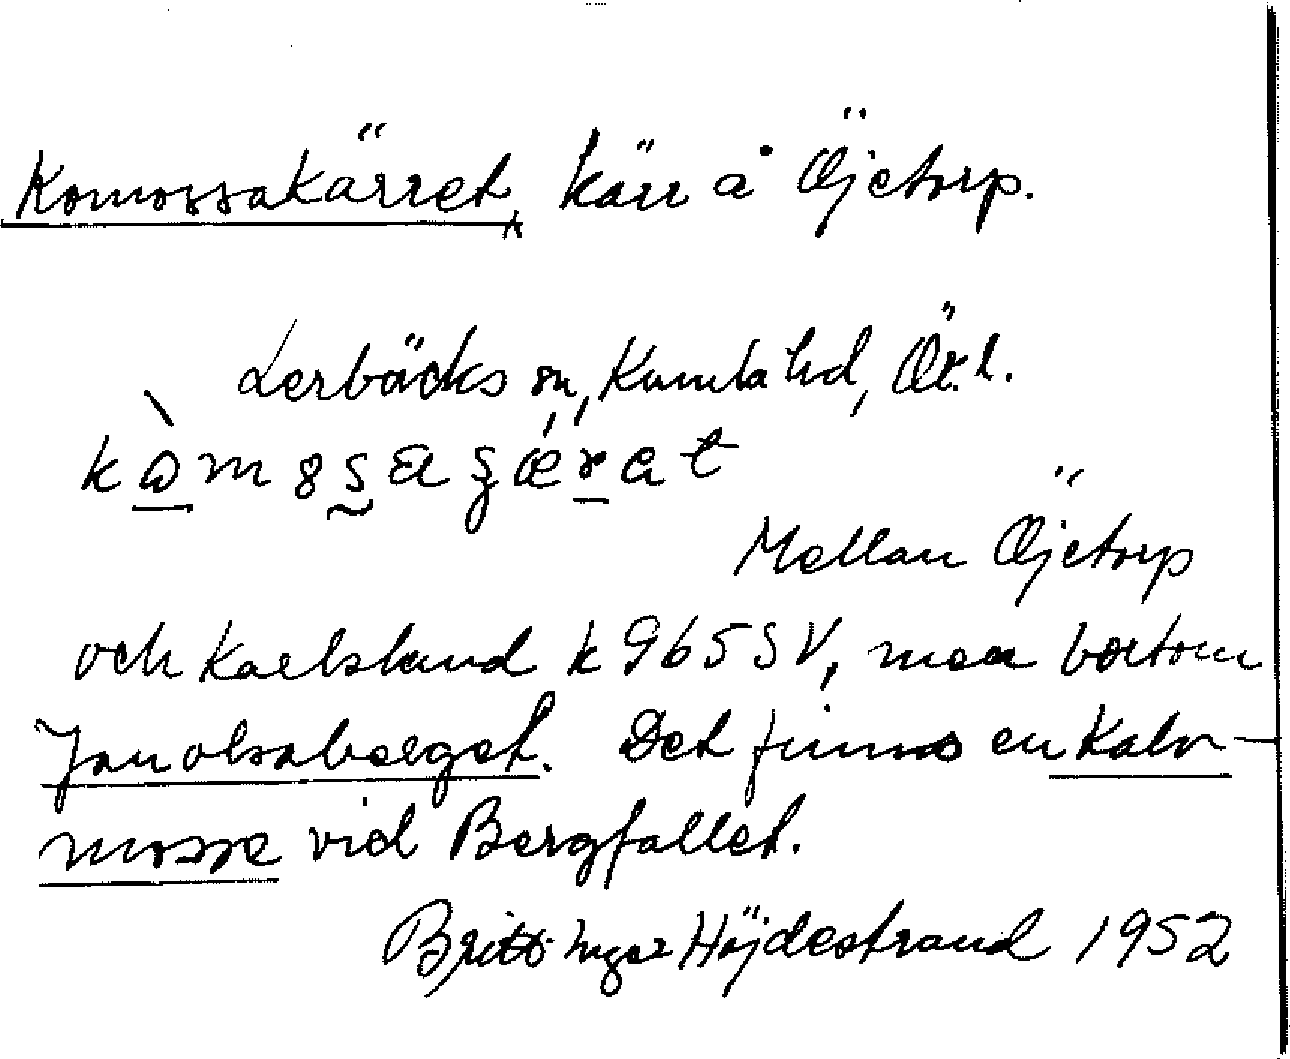 Komossakärret, kärr å Öjetorp.
Lerbäcks sn, Kumla hd, Ör.l.
Mellan Öjetorp
och Karlslund k 965 SV, mera bortom
Janolsaberget. Det finns en Kalv-
mosse vid Bergfallet.
Britt Inger Höjdestrand 1952